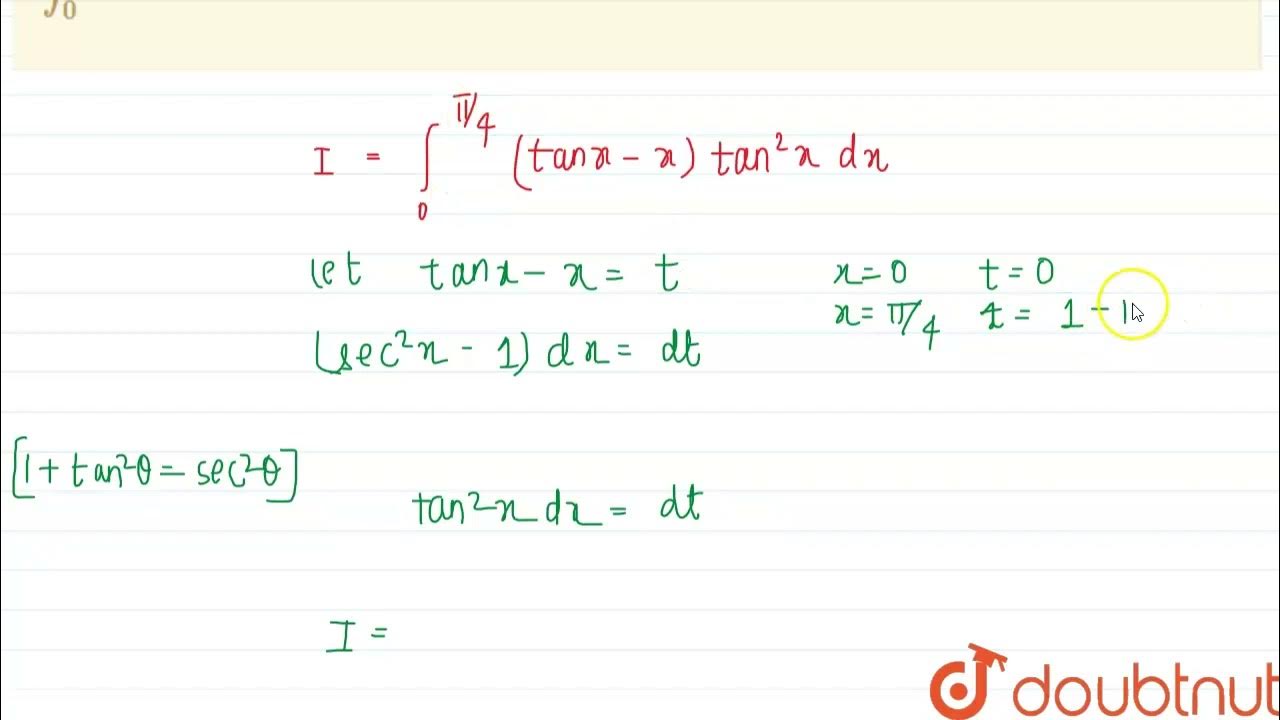 ∫₀
I = ∫₀^{π/4} (tanx - x) tan²x dx
let tanx - x = t
x = 0 t = 0
x = π/4 t = 1 -
(sec²x - 1) dx = dt
[1 + tan²θ = sec²θ]
tan²x dx = dt
I =
doubtnut